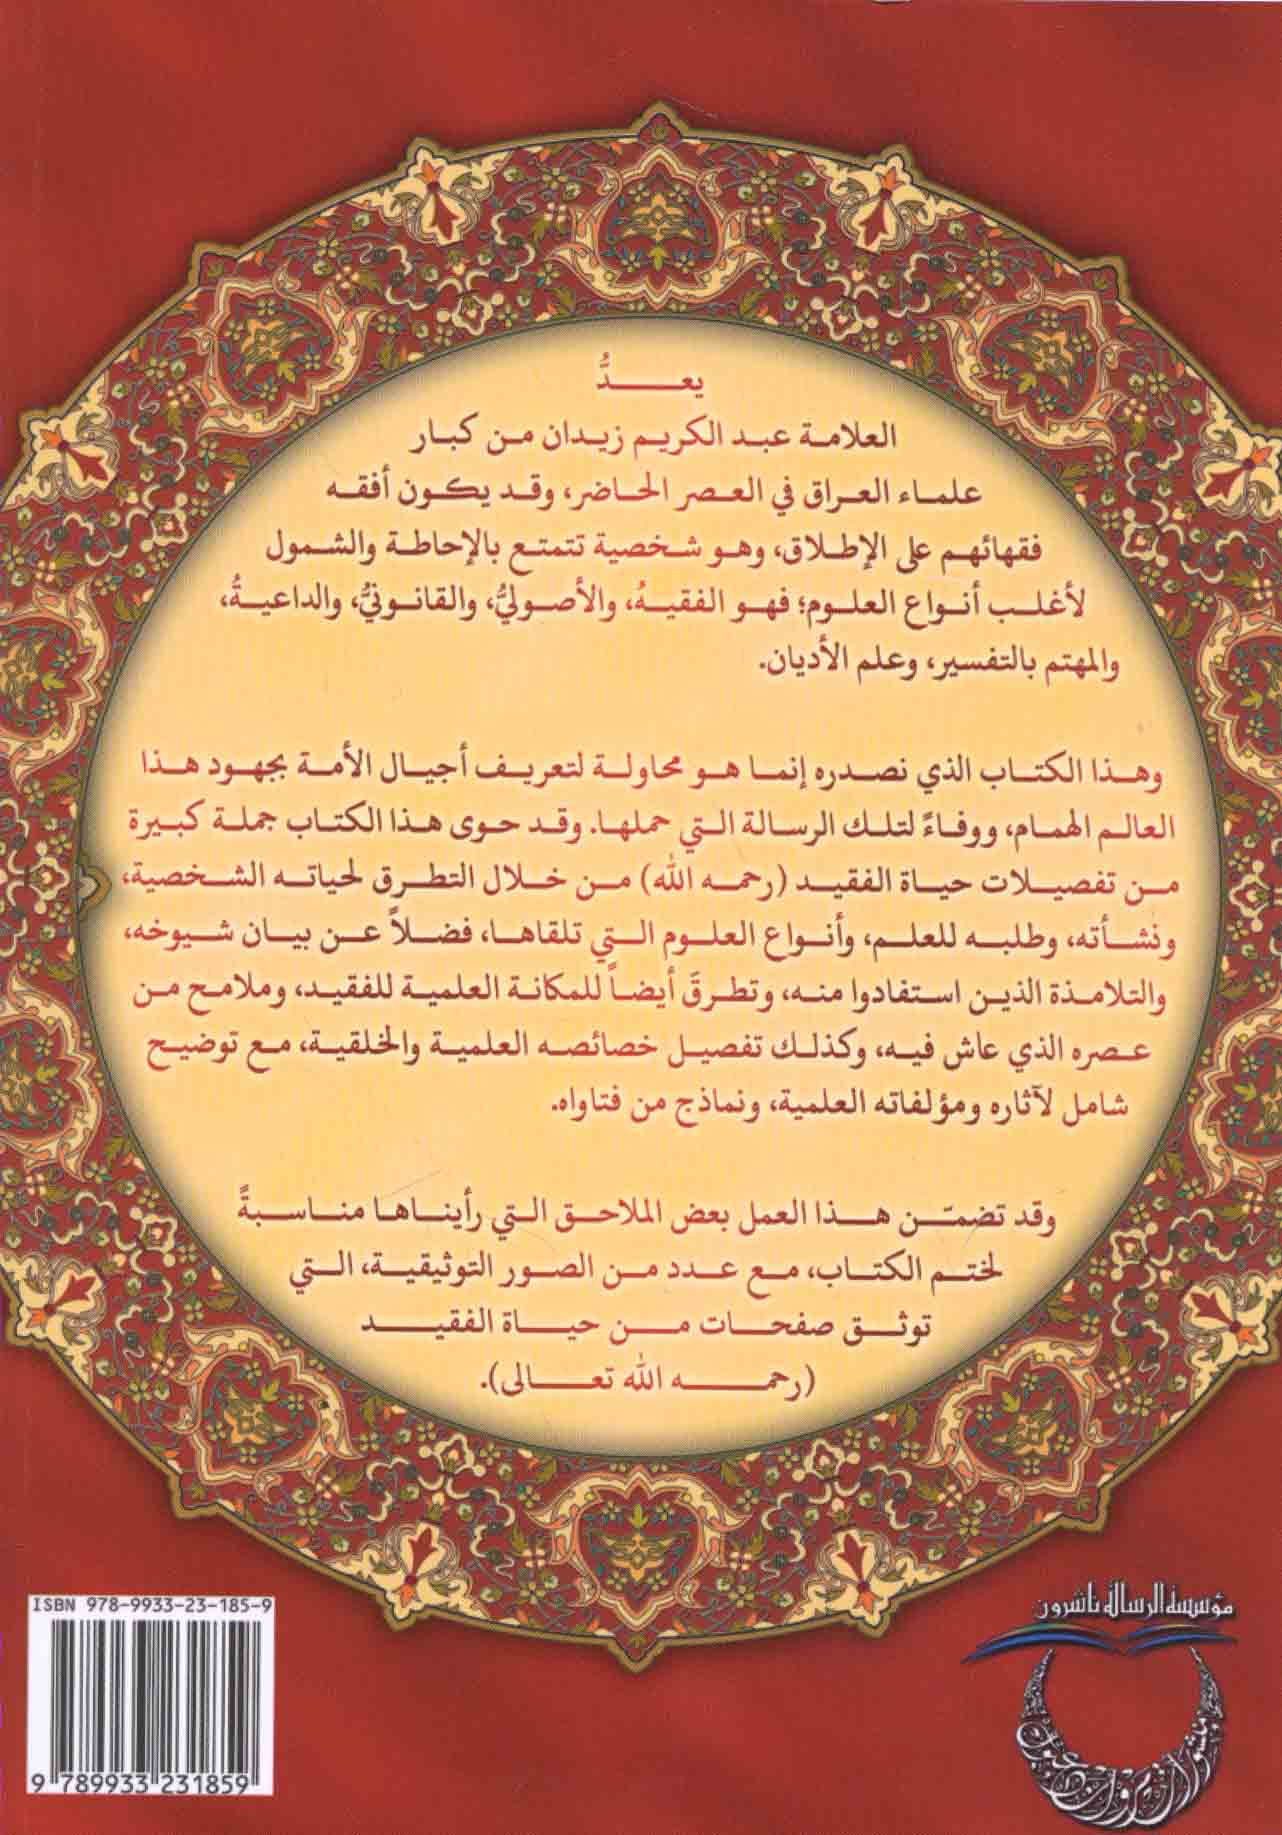 يعـــدُّ
العلامة عبد الكريم زيدان من كبار
علماء العراق في العصر الحاضر، وقد يكون أفقه
فقهائهم على الإطلاق، وهو شخصية تتمتع بالإحاطة والشمول
لأغلب أنواع العلوم؛ فهو الفقيهُ، والأصوليُّ، والقانونيُّ، والداعيةُ،
والمهتم بالتفسير، وعلم الأديان.
وهذا الكتاب الذي نصدره إنما هو محاولة لتعريف أجيال الأمة بجهود هذا
العالم الهمام، ووفاءً لتلك الرسالة التي حملها. وقد حوى هذا الكتاب جملة كبيرة
من تفصيلات حياة الفقيد (رحمه الله) من خلال التطرق لحياته الشخصية،
ونشأته، وطلبه للعلم، وأنواع العلوم التي تلقاها، فضلاً عن بيان شيوخه،
والتلامذة الذين استفادوا منه، وتطرقَ أيضاً للمكانة العلمية للفقيد، وملامح من
عصره الذي عاش فيه، وكذلك تفصيل خصائصه العلمية والخلقية، مع توضيح
شامل لآثاره ومؤلفاته العلمية، ونماذج من فتاواه.
وقد تضمّن هذا العمل بعض الملاحق التي رأيناها مناسبةً
لختم الكتاب، مع عدد من الصور التوثيقية، التي
توثق صفحات من حياة الفقيد
(رحمه الله تعالى).
ISBN 978-9933-23-185-9
9 789933 231859
مؤسسة الرسالة ناشرون